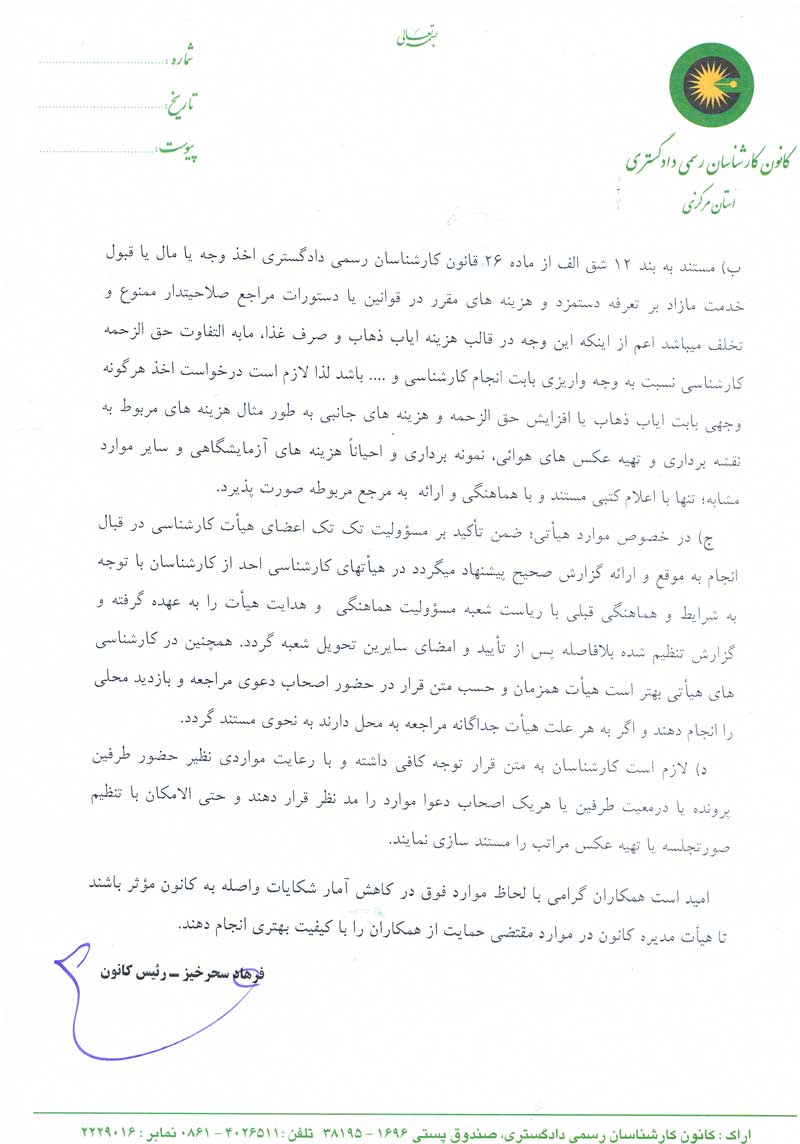 بسمه تعالی
شماره :
تاریخ :
پیوست :
کانون کارشناسان رسمی دادگستری
استان مرکزی
ب) مستند به بند ۱۲ شق الف از ماده ۲۶ قانون کارشناسان رسمی دادگستری اخذ وجه یا مال یا قبول
خدمت مازاد بر تعرفه دستمزد و هزینه های مقرر در قوانین یا دستورات مراجع صلاحیتدار ممنوع و
تخلف میباشد اعم از اینکه این وجه در قالب هزینه ایاب ذهاب و صرف غذا، مابه التفاوت حق الزحمه
کارشناسی نسبت به وجه واریزی بابت انجام کارشناسی و .... باشد لذا لازم است درخواست اخذ هرگونه
وجهی بابت ایاب ذهاب یا افزایش حق الزحمه و هزینه های جانبی به طور مثال هزینه های مربوط به
نقشه برداری و تهیه عکس های هوائی، نمونه برداری و احیاناً هزینه های آزمایشگاهی و سایر موارد
مشابه؛ تنها با اعلام کتبی مستند و با هماهنگی و ارائه به مرجع مربوطه صورت پذیرد.
ج) در خصوص موارد هیأتی؛ ضمن تأکید بر مسؤولیت تک تک اعضای هیأت کارشناسی در قبال
انجام به موقع و ارائه گزارش صحیح پیشنهاد میگردد در هیأتهای کارشناسی احد از کارشناسان با توجه
به شرایط و هماهنگی قبلی با ریاست شعبه مسؤولیت هماهنگی و هدایت هیأت را به عهده گرفته و
گزارش تنظیم شده بلافاصله پس از تأیید و امضای سایرین تحویل شعبه گردد. همچنین در کارشناسی
های هیأتی بهتر است هیأت همزمان و حسب متن قرار در حضور اصحاب دعوی مراجعه و بازدید محلی
را انجام دهند و اگر به هر علت هیأت جداگانه مراجعه به محل دارند به نحوی مستند گردد.
د) لازم است کارشناسان به متن قرار توجه کافی داشته و با رعایت مواردی نظیر حضور طرفین
پرونده یا درمعیت طرفین یا هریک اصحاب دعوا موارد را مد نظر قرار دهند و حتی الامکان با تنظیم
صورتجلسه یا تهیه عکس مراتب را مستند سازی نمایند.
امید است همکاران گرامی با لحاظ موارد فوق در کاهش آمار شکایات واصله به کانون مؤثر باشند
تا هیأت مدیره کانون در موارد مقتضی حمایت از همکاران را با کیفیت بهتری انجام دهند.
فرهاد سحرخیز ــ رئیس کانون
اراک : کانون کارشناسان رسمی دادگستری، صندوق پستی ۱۶۹۶ - ۳۸۱۹۵ تلفن : ۴۰۲۶۵۱۱ - ۰۸۶۱ نمابر : ۲۲۲۹۰۱۶